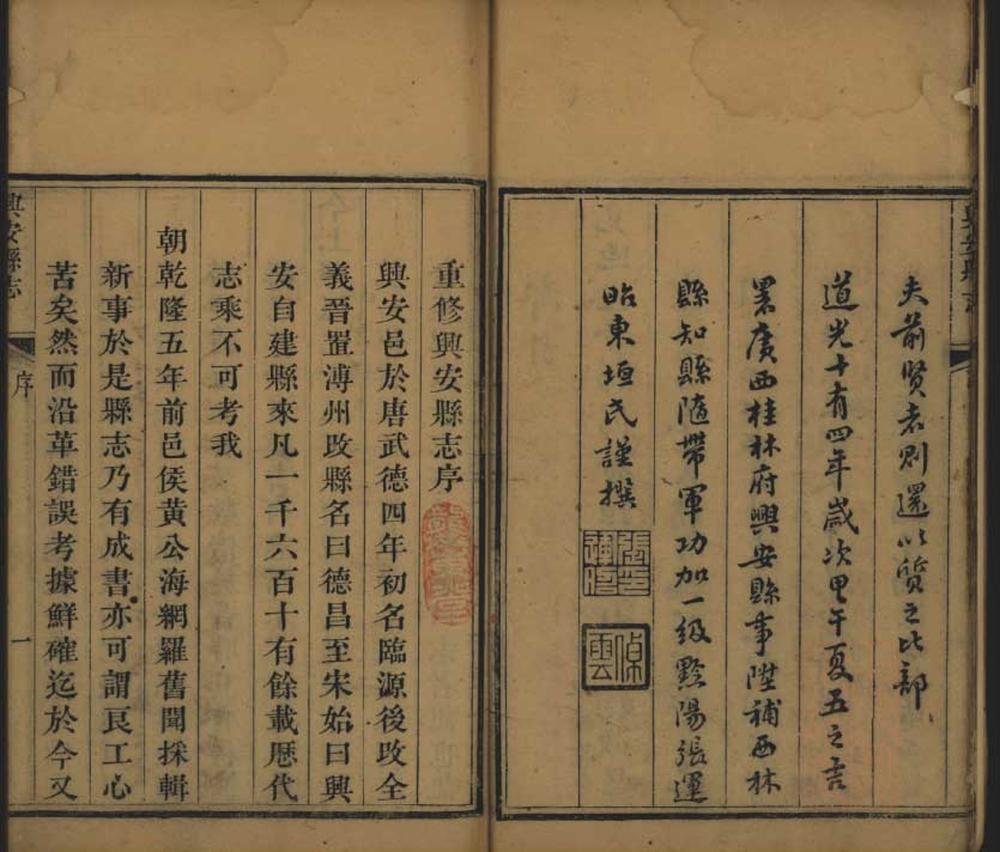 夫前賢者則還以質之比部
道光十有四年歲次甲午夏五之吉
署廣西桂林府興安縣事陞補西林
縣知縣隨帶軍功加一級黔陽張運
昭東垣氏謹撰
興安縣志
重修興安縣志序
興安邑於唐武德四年初名臨源後改全
義晉置溥州改縣名曰德昌至宋始曰興
安自建縣來凡一千六百十有餘載歷代
志乘不可考我
朝乾隆五年前邑侯黃公海網羅舊聞採輯
新事於是縣志乃有成書亦可謂良工心
苦矣然而沿革錯誤考據鮮確迄於今又
興安縣志
序
一